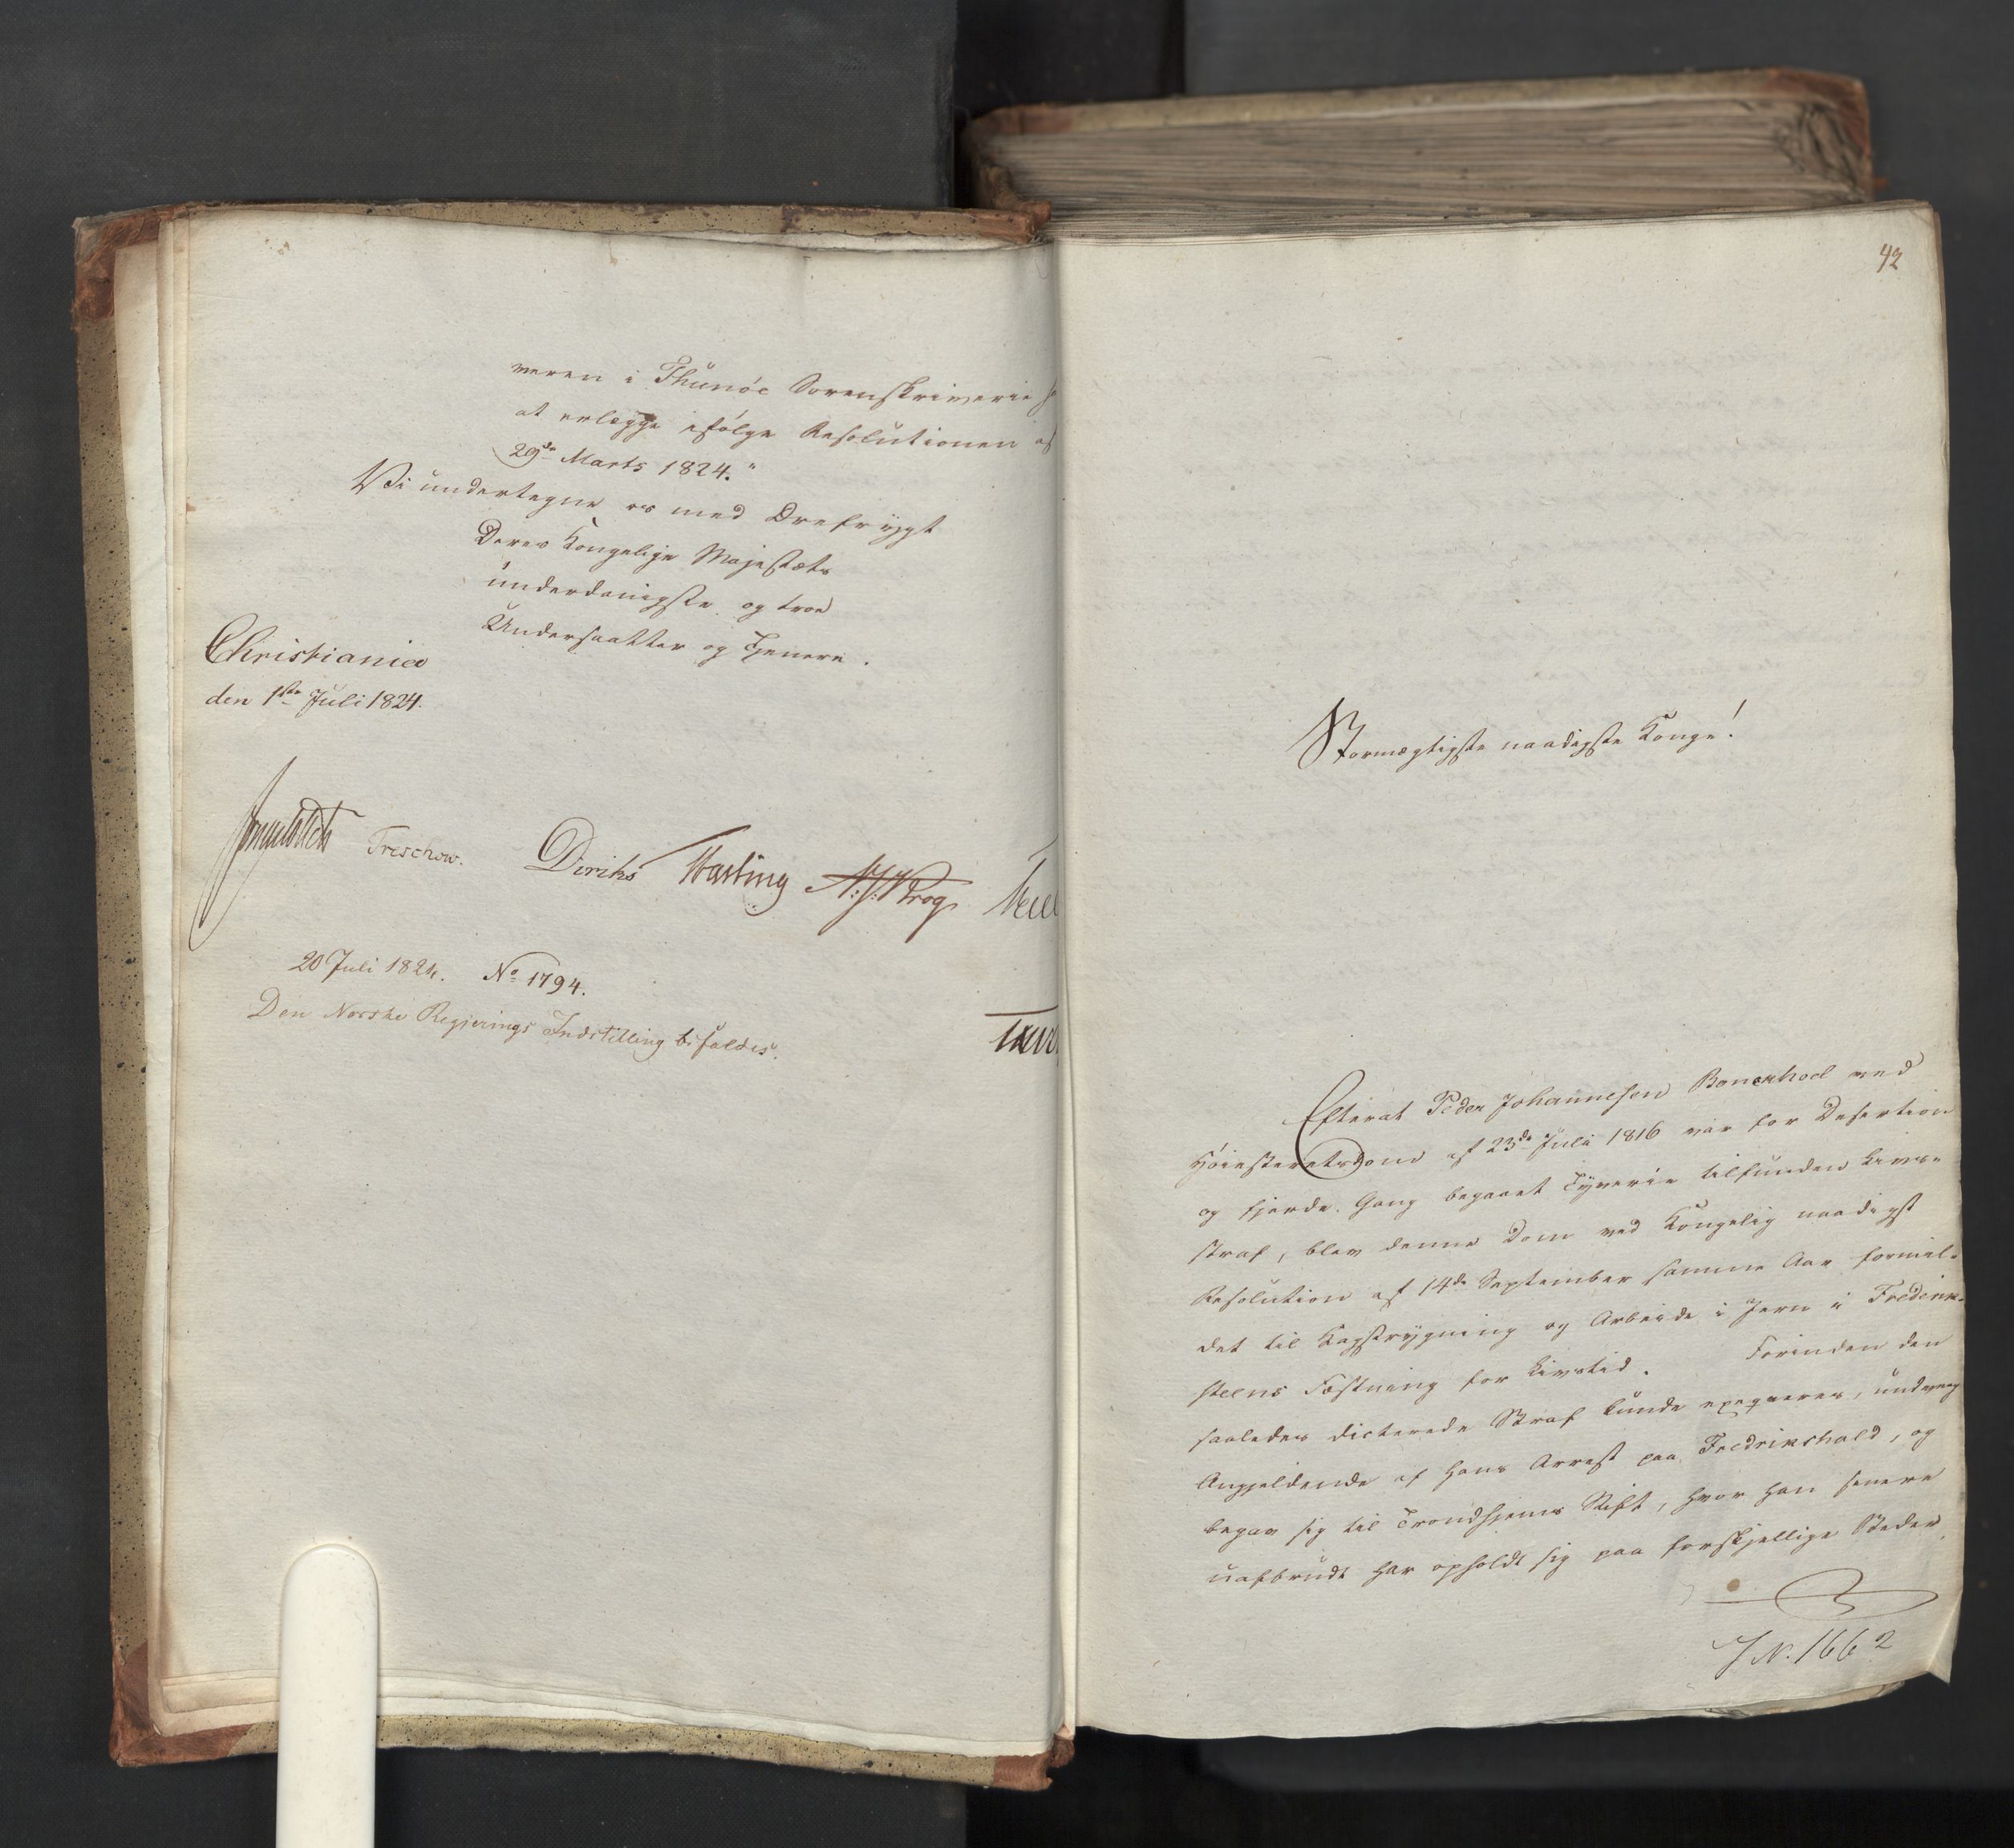 veren i Thunøe Sorenskriverie
at erlægge ifølge Resolutionen af
29de Marts 1824."
Vi undertegne os med Ærefrygt
Deres Kongelige Majestæts
underdanigste og troe
Undersaatter og Tjenere.
Christiania
den 1ste Juli 1824.
Treschow. Diriks Fasting N:J:Krog
20 Juli 1824. No 1794.
Den Norske Regjerings Indstilling bifaldes.
42
Stormægtigste naadigste Konge!
Efterat Peder Johannesen ved
Høiesteretsdom af 23de Juli 1816 var for Desertion
og fjerde Gang begaaet Tyverie tilfunden Livs-
straf, blev denne Dom ved Kongelig naadigst
Resolution af 14de September samme Aar formil-
det til Kagstrygning og Arbeide i Jern i Fredrik-
steens Fæstning for Livstid. Forinden den
saaledes dicterede Straf kunde exeqveres, undveeg
Angjeldende af hans Arrest paa Fredrikshald, og
begav sig til Trondhjems Stift, hvor han senere
uafbrudt har opholdt sig paa forskjellige Steder,
J N. 1662